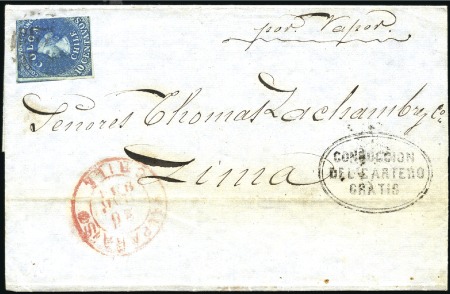 por Vapor.
COLON
CHILE
10 CENTAVOS
Señores Thomas Lachambre y Co.
Lima
CONDUCCION
DEL CARTERO
GRATIS
VALPARAISO
CHILE